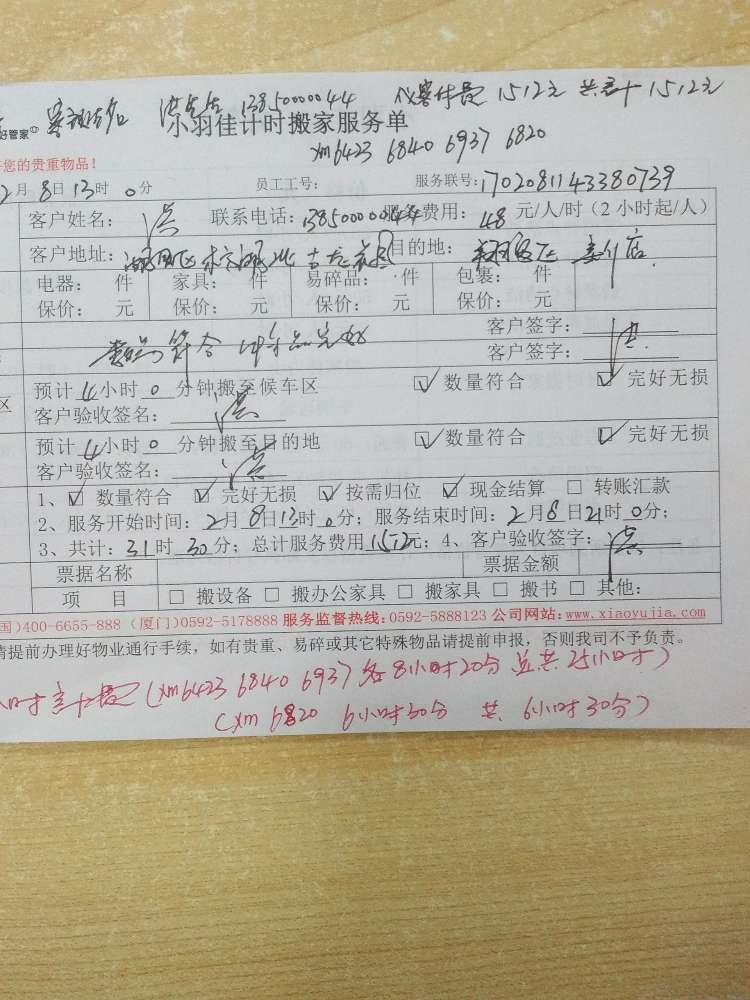 洪先生 13850000044 1512元 共计 1512元
好管家 小羽佳计时搬家服务单
xm6423 6840 6937 6820
您的贵重物品!
2月8日13时0分 员工工号: 服务联号:1702081143380739
客户姓名:洪 联系电话:13850000044 服务费用:48元/人/时(2小时起/人)
客户地址: 目的地:
电器: 件 家具: 件 易碎品: 件 包裹: 件
保价: 元 保价: 元 保价: 元 保价: 元
数量符合 完好 客户签字:洪
客户签字:
区 预计4小时0分钟搬至候车区 ☑数量符合 ☑完好无损
客户验收签名:洪
预计4小时0分钟搬至目的地 ☑数量符合 ☑完好无损
客户验收签名:洪
1、☑数量符合 ☑完好无损 ☑按需归位 ☑现金结算 □转账汇款
2、服务开始时间:2月8日13时0分;服务结束时间:2月8日21时0分;
3、共计:31时30分;总计服务费用1512元;4、客户验收签字:洪
票据名称 票据金额
项 目 □搬设备 □搬办公家具 □搬家具 □搬书 □其他:
国)400-6655-888 (厦门)0592-5178888 服务监督热线:0592-5888123 公司网站:www.xiaoyujia.com
请提前办理好物业通行手续,如有贵重、易碎或其它特殊物品请提前申报,否则我司不予负责。
小时计费(xm6423 6840 6937 各8小时20分 总共25小时)
(xm 6820 6小时30分 共 6小时30分)